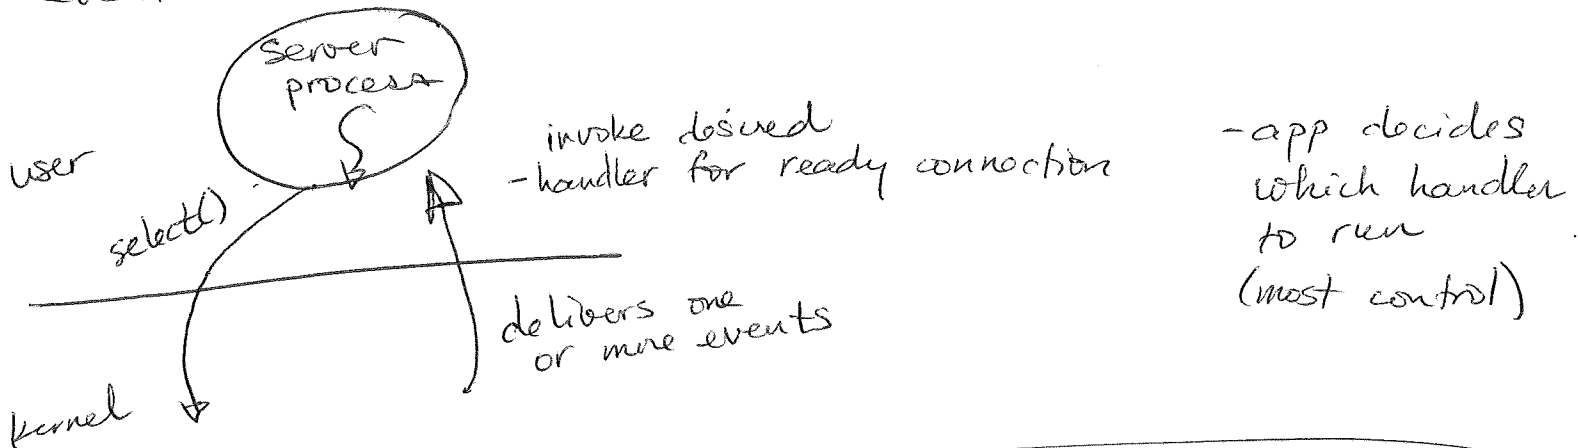 Server
process
user
select()
invoke desired
- handler for ready connection
- app decides
which handler
to run
(most control)
delivers one
or more events
kernel